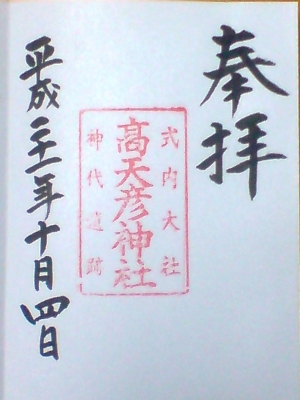 奉拝
式内大社
高天彦神社
神代遺跡
平成二十一年十月四日